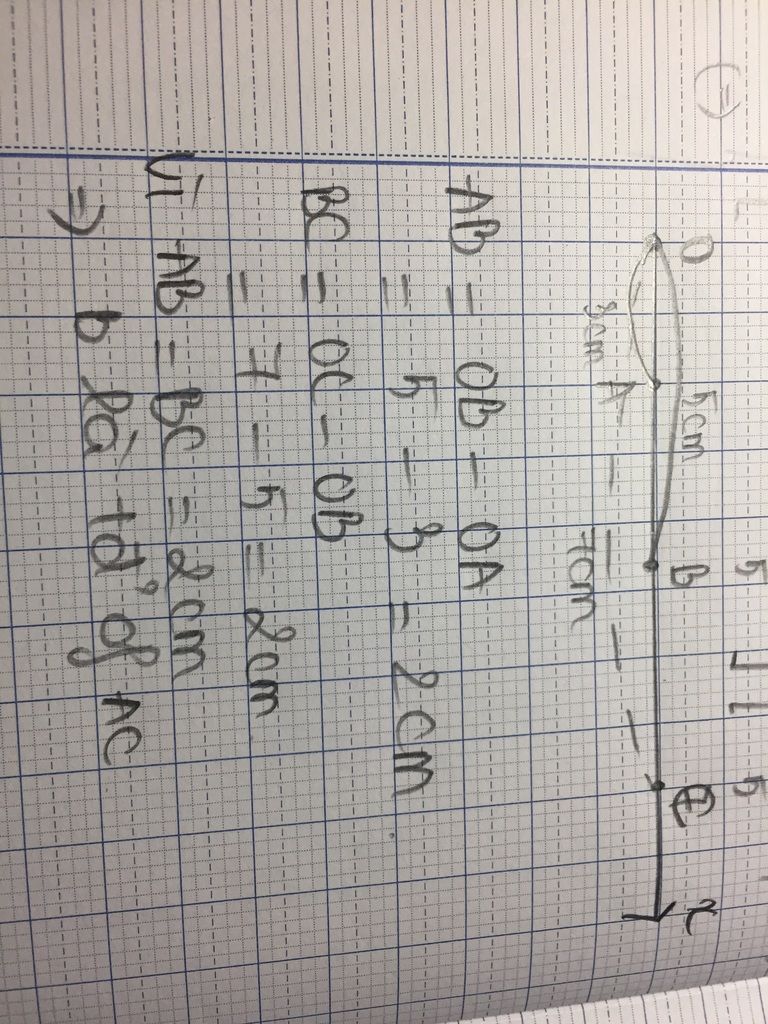 O 5cm B C x
3cm A
7cm
AB = OB - OA
= 5 - 3 = 2cm
BC = OC - OB
= 7 - 5 = 2cm
Vì AB = BC = 2cm
=> b là tđ' of AC